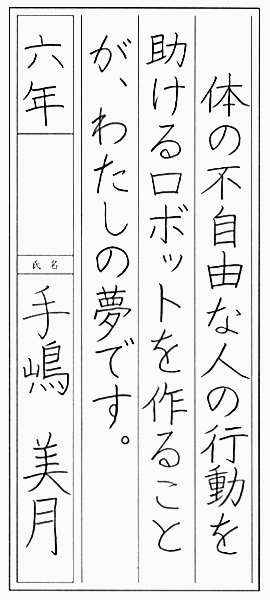 体の不自由な人の行動を
助けるロボットを作ること
が、わたしの夢です。
六年
氏名
手嶋 美月